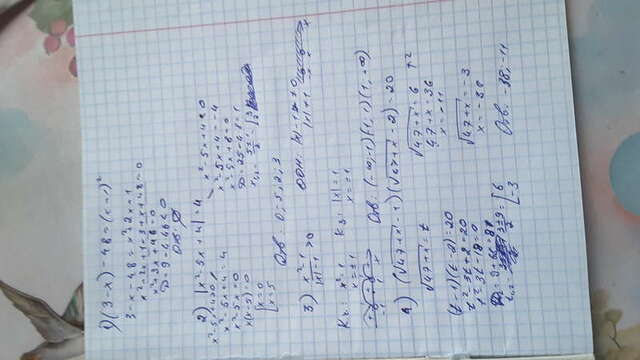 1) (3-x) - 48 = (x+1)²
3-x-48=x²+2x+1
x²+2x+1-3+x+48=0
x²+3x+46=0
D=9-4·46<0
Отв: ∅
2) |x²-5x+4|=4
x²-5x+4≥0
x²-5x+4=4
x²-5x=0
x(x-5)=0
[x=0
x=5
x²-5x+4<0
x²-5x+4=-4
x²-5x+8=0
Отв: 0; 5; 2; 3
3) x²-1 / |x|-1 >0
ОДН: |x|-1≠0
|x|≠1
Кч: x²=1
x=±1
Кз: |x|=1
x=±1
-1 1 x
4) (√47+x - 1)(√47+x - 2)=20
√47+x = t
(t-1)(t-2)=20
t²-3t+2=20
t²-3t-18=0
3±9/2 = [6
-3
√47+x = 6 ↑2
47+x=36
x=-11
√47+x = -3
x=-38
Отв: -38, -11